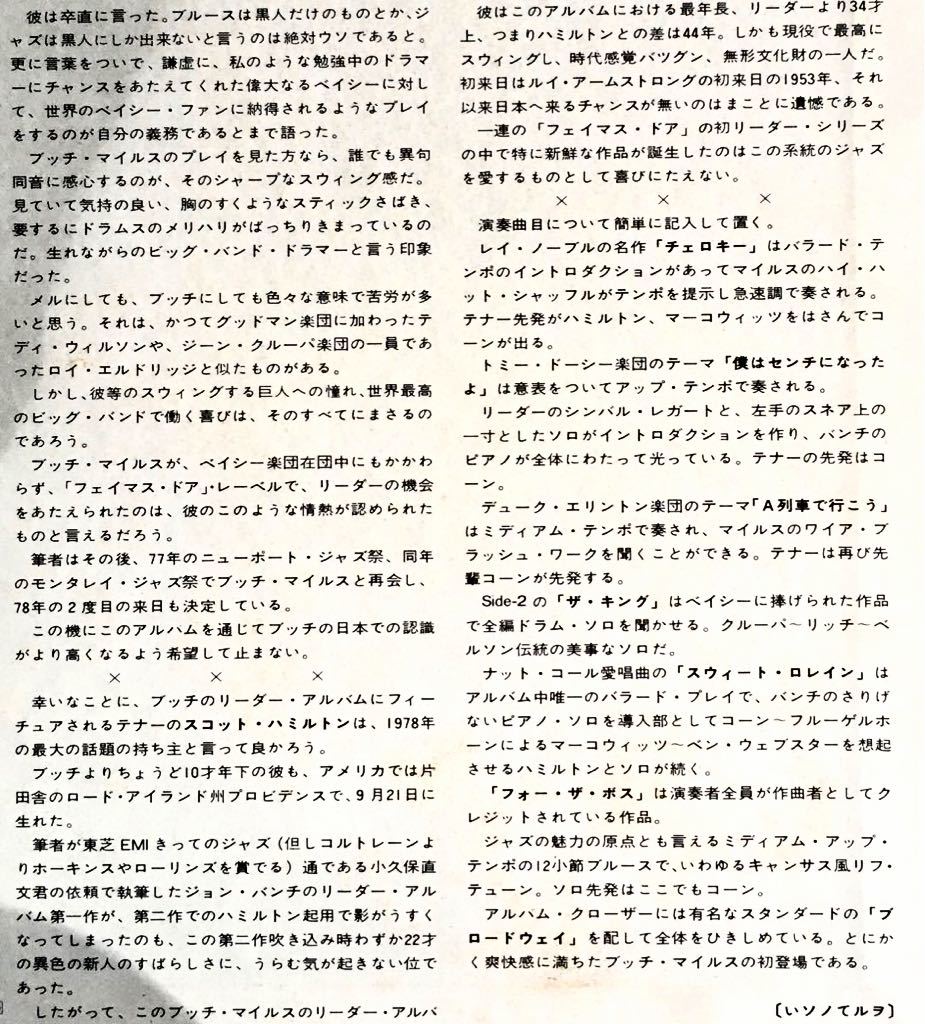 彼は卒直に言った。ブルースは黒人だけのものとか、ジ
ャズは黒人にしか出来ないと言うのは絶対ウソであると。
更に言葉をついで、謙虚に、私のような勉強中のドラマ
ーにチャンスをあたえてくれた偉大なるベイシーに対し
て、世界のベイシー・ファンに納得されるようなプレイ
をするのが自分の義務であるとまで語った。
ブッチ・マイルスのプレイを見た方なら、誰でも異句
同音に感心するのが、そのシャープなスウィング感だ。
見ていて気持の良い、胸のすくようなスティックさばき、
要するにドラムスのメリハリがばっちりきまっているの
だ。生れながらのビッグ・バンド・ドラマーと言う印象
だった。
メルにしても、ブッチにしても色々な意味で苦労が多
いと思う。それは、かつてグッドマン楽団に加わったテ
ディ・ウィルソンや、ジーン・クルーパ楽団の一員であ
ったロイ・エルドリッジと似たものがある。
しかし、彼等のスウィングする巨人への憧れ、世界最高
のビッグ・バンドで働く喜びは、そのすべてにまさるの
であろう。
ブッチ・マイルスが、ベイシー楽団在団中にもかかわ
らず、「フェイマス・ドア」・レーベルで、リーダーの機会
をあたえられたのは、彼のこのような情熱が認められた
ものと言えるだろう。
筆者はその後、77年のニューポート・ジャズ祭、同年
のモンタレイ・ジャズ祭でブッチ・マイルスと再会し、
78年の2度目の来日も決定している。
この機にこのアルバムを通じてブッチの日本での認識
がより高くなるよう希望して止まない。
× × ×
幸いなことに、ブッチのリーダー・アルバムにフィー
チュアされるテナーのスコット・ハミルトンは、1978年
の最大の話題の持ち主と言って良かろう。
ブッチよりちょうど10才年下の彼も、アメリカでは片
田舎のロード・アイランド州プロビデンスで、9月21日に
生れた。
筆者が東芝EMIきってのジャズ(但しコルトレーンよ
りホーキンスやローリンズを賞でる)通である小久保直
文君の依頼で執筆したジョン・バンチのリーダー・アル
バム第一作が、第二作でのハミルトン起用で影がうすく
なってしまったのも、この第二作吹き込み時わずか22才
の異色の新人のすばらしさに、うらむ気が起きない位で
あった。
したがって、このブッチ・マイルスのリーダー・アルバ
彼はこのアルバムにおける最年長、リーダーより34才
上、つまりハミルトンとの差は44年。しかも現役で最高に
スウィングし、時代感覚バツグン、無形文化財の一人だ。
初来日はルイ・アームストロングの初来日の1953年、それ
以来日本へ来るチャンスが無いのはまことに遺憾である。
一連の「フェイマス・ドア」の初リーダー・シリーズ
の中で特に新鮮な作品が誕生したのはこの系統のジャズ
を愛するものとして喜びにたえない。
× × ×
演奏曲目について簡単に記入して置く。
レイ・ノーブルの名作「チェロキー」はバラード・テ
ンポのイントロダクションがあってマイルスのハイ・ハ
ット・シャッフルがテンポを提示し急速調で奏される。
テナー先発がハミルトン、マーコウィッツをはさんでコ
ーンが出る。
トミー・ドーシー楽団のテーマ「僕はセンチになった
よ」は意表をついてアップ・テンポで奏される。
リーダーのシンバル・レガートと、左手のスネア上の
一寸としたソロがイントロダクションを作り、バンチの
ピアノが全体にわたって光っている。テナーの先発はコ
ーン。
デューク・エリントン楽団のテーマ「A列車で行こう」
はミディアム・テンポで奏され、マイルスのワイア・ブ
ラッシュ・ワークを聞くことができる。テナーは再び先
輩コーンが先発する。
Side-2の「ザ・キング」はベイシーに捧げられた作品
で全編ドラム・ソロを聞かせる。クルーパ〜リッチ〜ベ
ルソン伝統の美事なソロだ。
ナット・コール愛唱曲の「スウィート・ロレイン」は
アルバム中唯一のバラード・プレイで、バンチのさりげ
ないピアノ・ソロを導入部としてコーン〜フルーゲルホ
ーンによるマーコウィッツ〜ベン・ウェブスターを想起
させるハミルトンとソロが続く。
「フォー・ザ・ボス」は演奏者全員が作曲者としてク
レジットされている作品。
ジャズの魅力の原点とも言えるミディアム・アップ・
テンポの12小節ブルースで、いわゆるキャンサス風リフ・
テューン。ソロ先発はここでもコーン。
アルバム・クローザーには有名なスタンダードの「ブ
ロードウェイ」を配して全体をひきしめている。とにか
く爽快感に満ちたブッチ・マイルスの初登場である。
〔いソノてルヲ〕